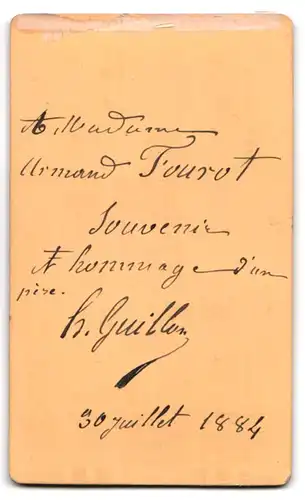 A Madame
Armand Fourot
Souvenir
et hommage d'un
père.
h. Guillon
30 juillet 1884